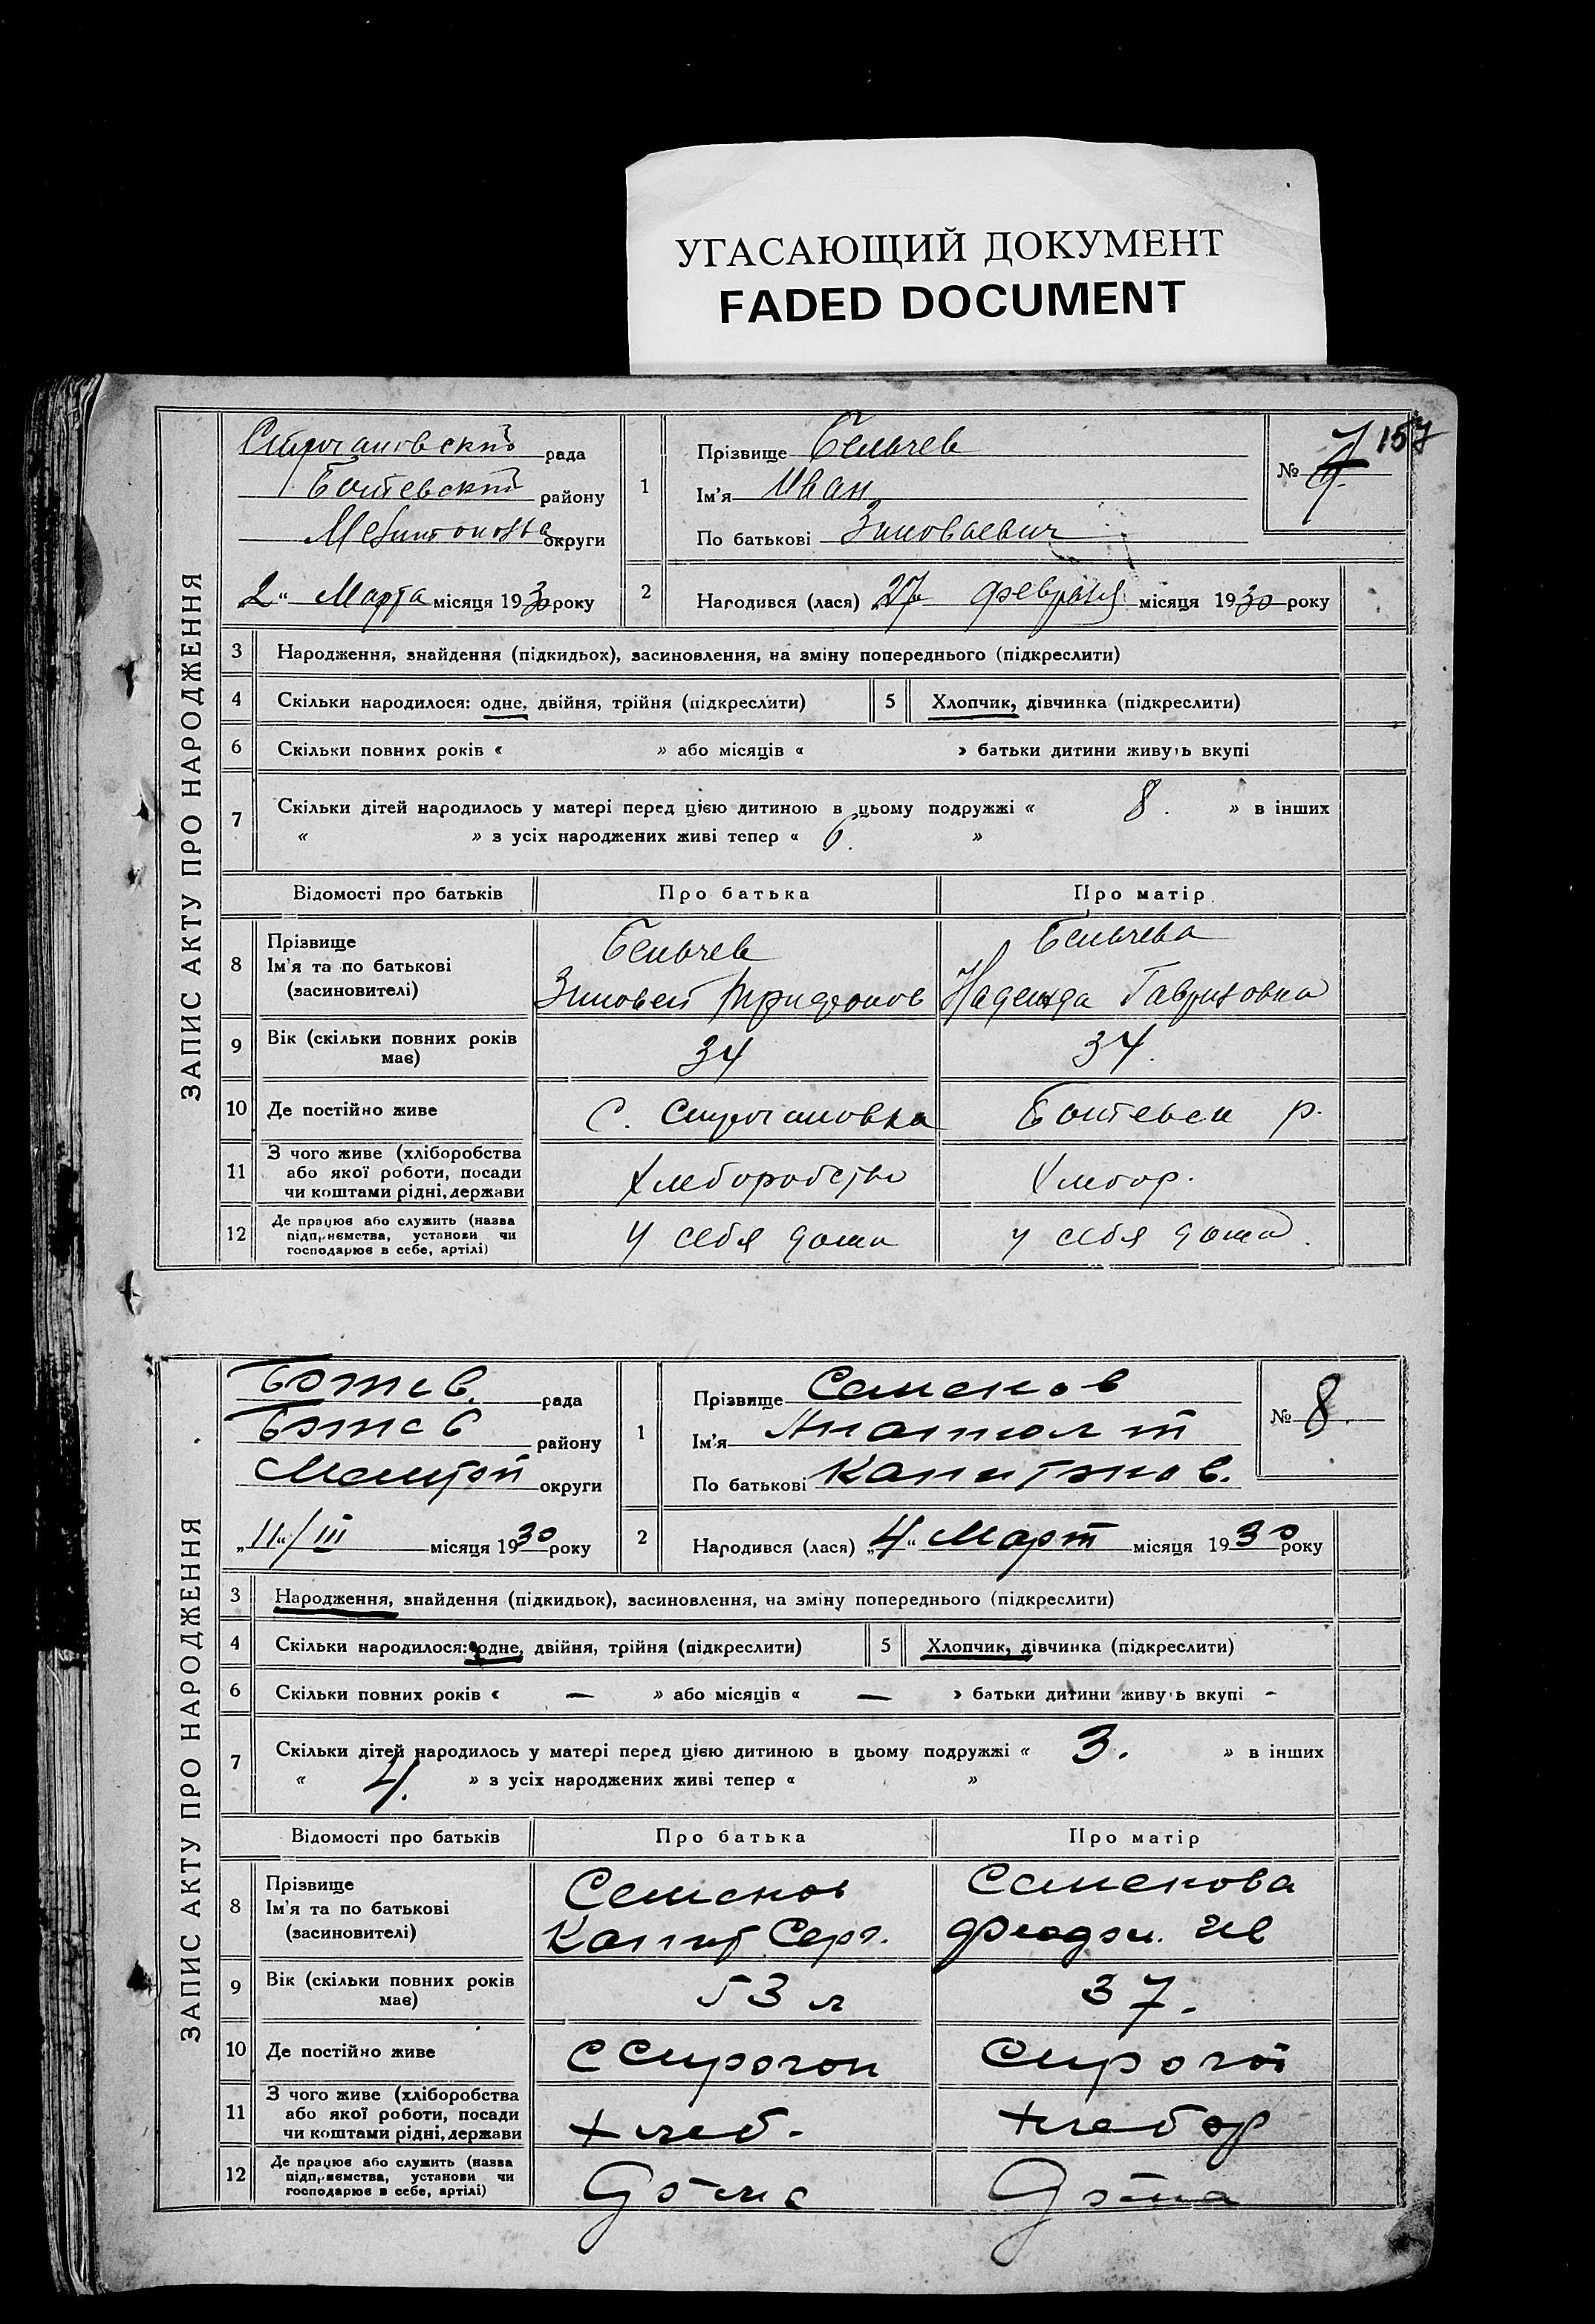 УГАСАЮЩИЙ ДОКУМЕНТ
FADED DOCUMENT
157
ЗАПИС АКТУ ПРО НАРОДЖЕННЯ
Строгановский рада
Ботевский району
округи
2 „ Марта місяця 1930 року
1
Прізвище Бельчев
Ім'я Иван
По батькові Зиноваевич
№ 7
2
Народився (лася) 27 февраля місяця 1930 року
3 Народження, знайдення (підкидьох), засиновлення, на зміну попереднього (підкреслити)
4 Скільки народилося: одне, двійня, трійня (підкреслити) 5 Хлопчик, дівчинка (підкреслити)
6 Скільки повних років « » або місяців « » батьки дитини живуть вкупі
7 Скільки дітей народилось у матері перед цією дитиною в цьому подружжі « 8. » в інших
« » з усіх народжених живі тепер « 6. »
Відомості про батьків Про батька Про матір
8 Прізвище
Ім'я та по батькові
(засиновителі)
Бельчев
Зиновей Трифонов
Бельчева
Надежда Гавриловна
9 Вік (скільки повних років
має)
34 34.
10 Де постійно живе С. Строгановка Ботевск р.
11 З чого живе (хліборобства
або якої роботи, посади
чи коштами рідні, держави
Хлебородство Хлебор.
12 Де працює або служить (назва
підприємства, установи чи
господарює в себе, артілі)
у себя дома у себя дома.
ЗАПИС АКТУ ПРО НАРОДЖЕННЯ
Ботев. рада
Ботев району
округи
„11"/III місяця 1930 року
1
Прізвище Семенов
Ім'я Анатолий
По батькові Капитонов.
№ 8.
2
Народився (лася) „4" Март місяця 1930 року
3 Народження, знайдення (підкидьок), засиновлення, на зміну попереднього (підкреслити)
4 Скільки народилося: одне, двійня, трійня (підкреслити) 5 Хлопчик, дівчинка (підкреслити)
6 Скільки повних років « — » або місяців « — » батьки дитини живуть вкупі -
7 Скільки дітей народилось у матері перед цією дитиною в цьому подружжі « 3. » в інших
« 4. » з усіх народжених живі тепер « »
Відомості про батьків Про батька Про матір
8 Прізвище
Ім'я та по батькові
(засиновителі)
Семенов
Капит Серг.
Семенова
Ив
9 Вік (скільки повних років
має)
53 л 37.
10 Де постійно живе С Строган Строган
11 З чого живе (хліборобства
або якої роботи, посади
чи коштами рідні, держави
хлеб. хлебор
12 Де працює або служить (назва
підприємства, установи чи
господарює в себе, артілі)
Дома Дома